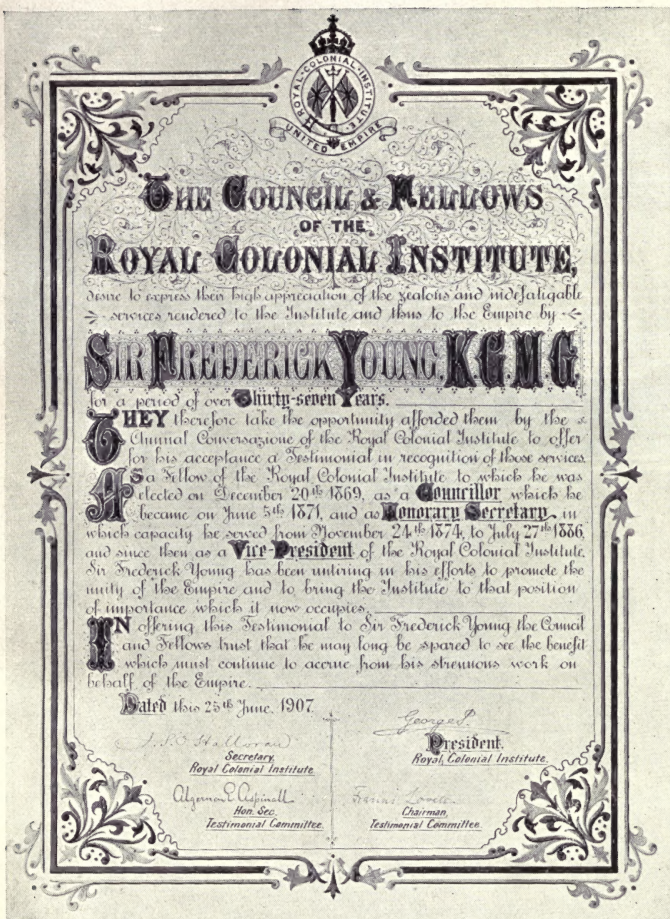 ROYAL·COLONIAL·INSTITUTE
UNITED EMPIRE
THE COUNCIL & FELLOWS
OF THE
ROYAL COLONIAL INSTITUTE,
desire to express their high appreciation of the zealous and indefatigable
services rendered to the Institute and thus to the Empire by
SIR FREDERICK YOUNG, K.C.M.G.
for a period of over Thirty-seven Years.
THEY therefore take the opportunity afforded them by the
Annual Conversazione of the Royal Colonial Institute to offer
for his acceptance a Testimonial in recognition of those services.
AS a Fellow of the Royal Colonial Institute to which he was
elected on December 20th 1869, as a Councillor which he
became on June 5th 1871, and as Honorary Secretary in
which capacity he served from November 24th 1874, to July 27th 1886,
and since then as a Vice-President of the Royal Colonial Institute,
Sir Frederick Young has been untiring in his efforts to promote the
unity of the Empire and to bring the Institute to that position
of importance which it now occupies.
IN offering this Testimonial to Sir Frederick Young the Council
and Fellows trust that he may long be spared to see the benefit
which must continue to accrue from his strenuous work on
behalf of the Empire.
Dated this 25th June, 1907.
George P.
President,
Royal Colonial Institute.
J. S. O'Halloran
Secretary,
Royal Colonial Institute
Algernon E. Aspinall
Hon. Sec.
Testimonial Committee.
Francis Lovell
Chairman,
Testimonial Committee.